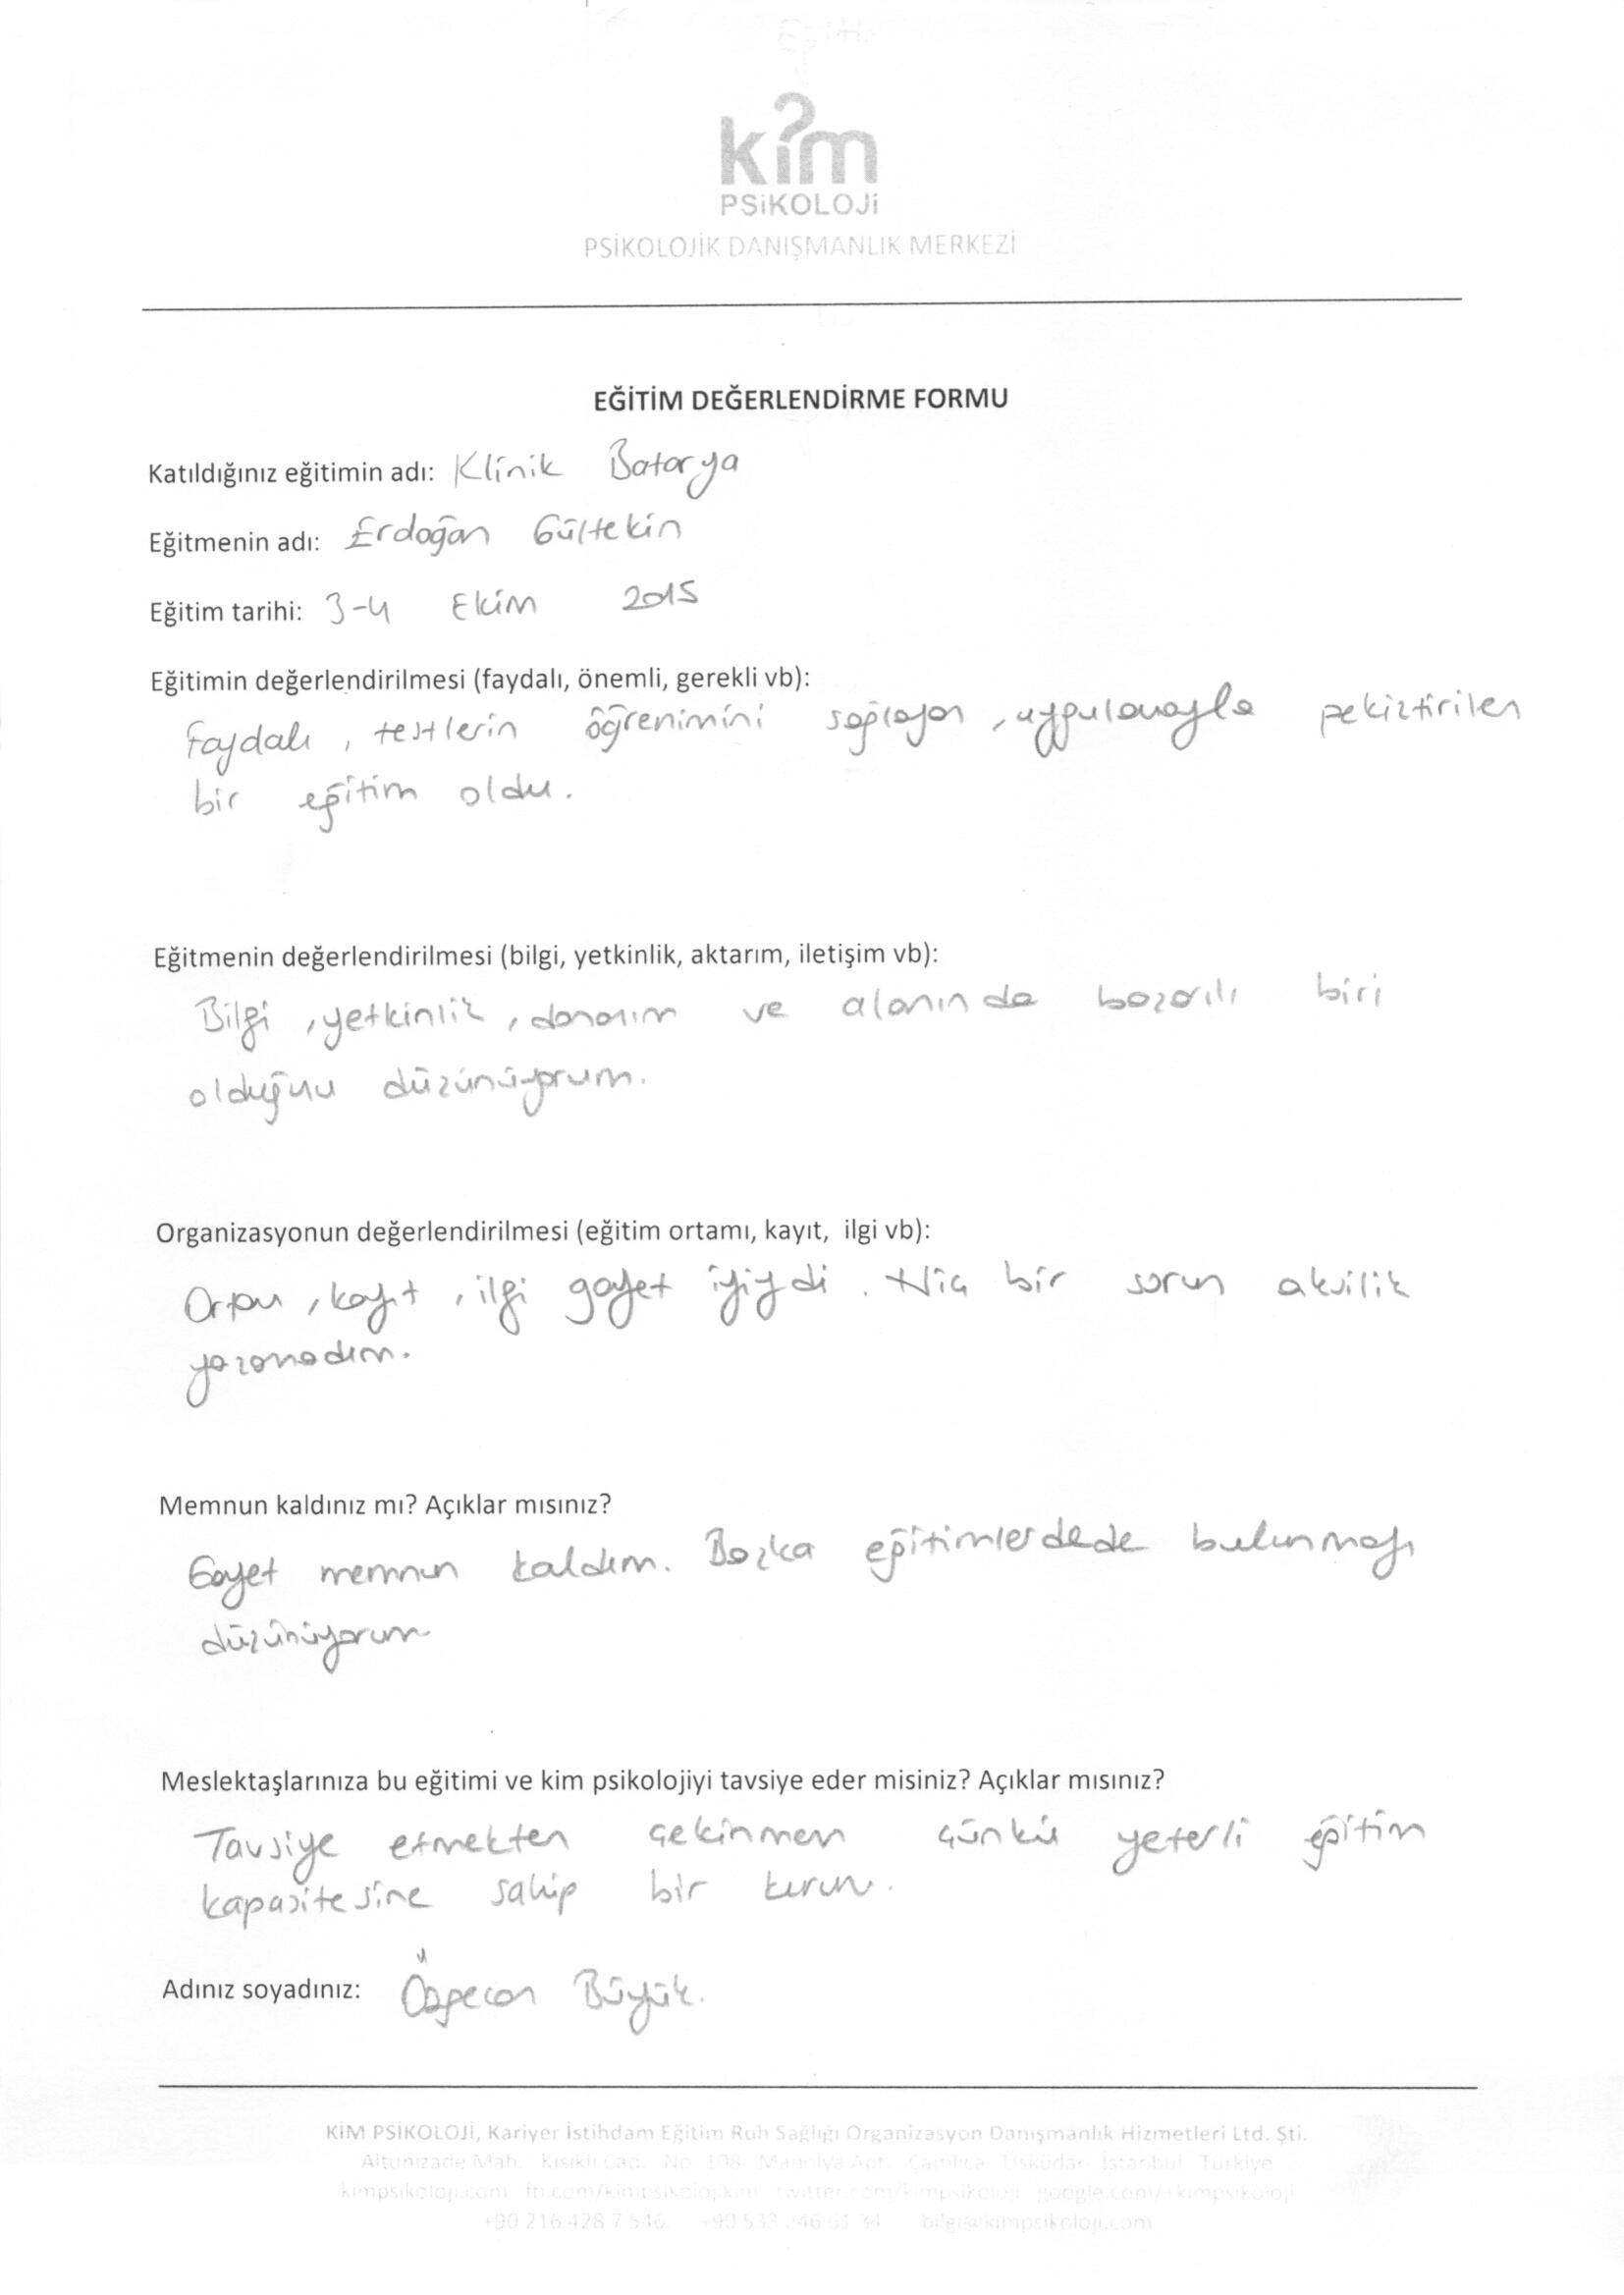 kim
PSiKOLOJi
PSİKOLOJİK DANIŞMANLIK MERKEZİ
EĞİTİM DEĞERLENDİRME FORMU
Katıldığınız eğitimin adı: Klinik Batarya
Eğitmenin adı: Erdoğan Gültekin
Eğitim tarihi: 3-4 Ekim 2015
Eğitimin değerlendirilmesi (faydalı, önemli, gerekli vb):
Faydalı, testlerin öğrenimini sağlayan, uygulamayla pekiştirilen
bir eğitim oldu.
Eğitmenin değerlendirilmesi (bilgi, yetkinlik, aktarım, iletişim vb):
Bilgi, yetkinlik, donanım ve alanında başarılı biri
olduğunu düşünüyorum.
Organizasyonun değerlendirilmesi (eğitim ortamı, kayıt, ilgi vb):
kayıt, ilgi gayet iyiydi. Hiç bir sorun aksilik
yaşamadım.
Memnun kaldınız mı? Açıklar mısınız?
Gayet memnun kaldım. Başka eğitimlerdede bulunmayı
düşünüyorum
Meslektaşlarınıza bu eğitimi ve kim psikolojiyi tavsiye eder misiniz? Açıklar mısınız?
Tavsiye etmekten çekinmem çünkü yeterli eğitim
kapasitesine sahip bir kurum.
Adınız soyadınız: Özgecan Büyük.
KİM PSİKOLOJİ, Kariyer İstihdam Eğitim Ruh Sağlığı Organizasyon Danışmanlık Hizmetleri Ltd. Şti.
Altunizade Mah. Kısıklı Cad. No. 108 Manolya Apt. Çamlıca Üsküdar İstanbul Türkiye
kimpsikoloji.com
+90 216 428 7 546 bilgi@kimpsikoloji.com